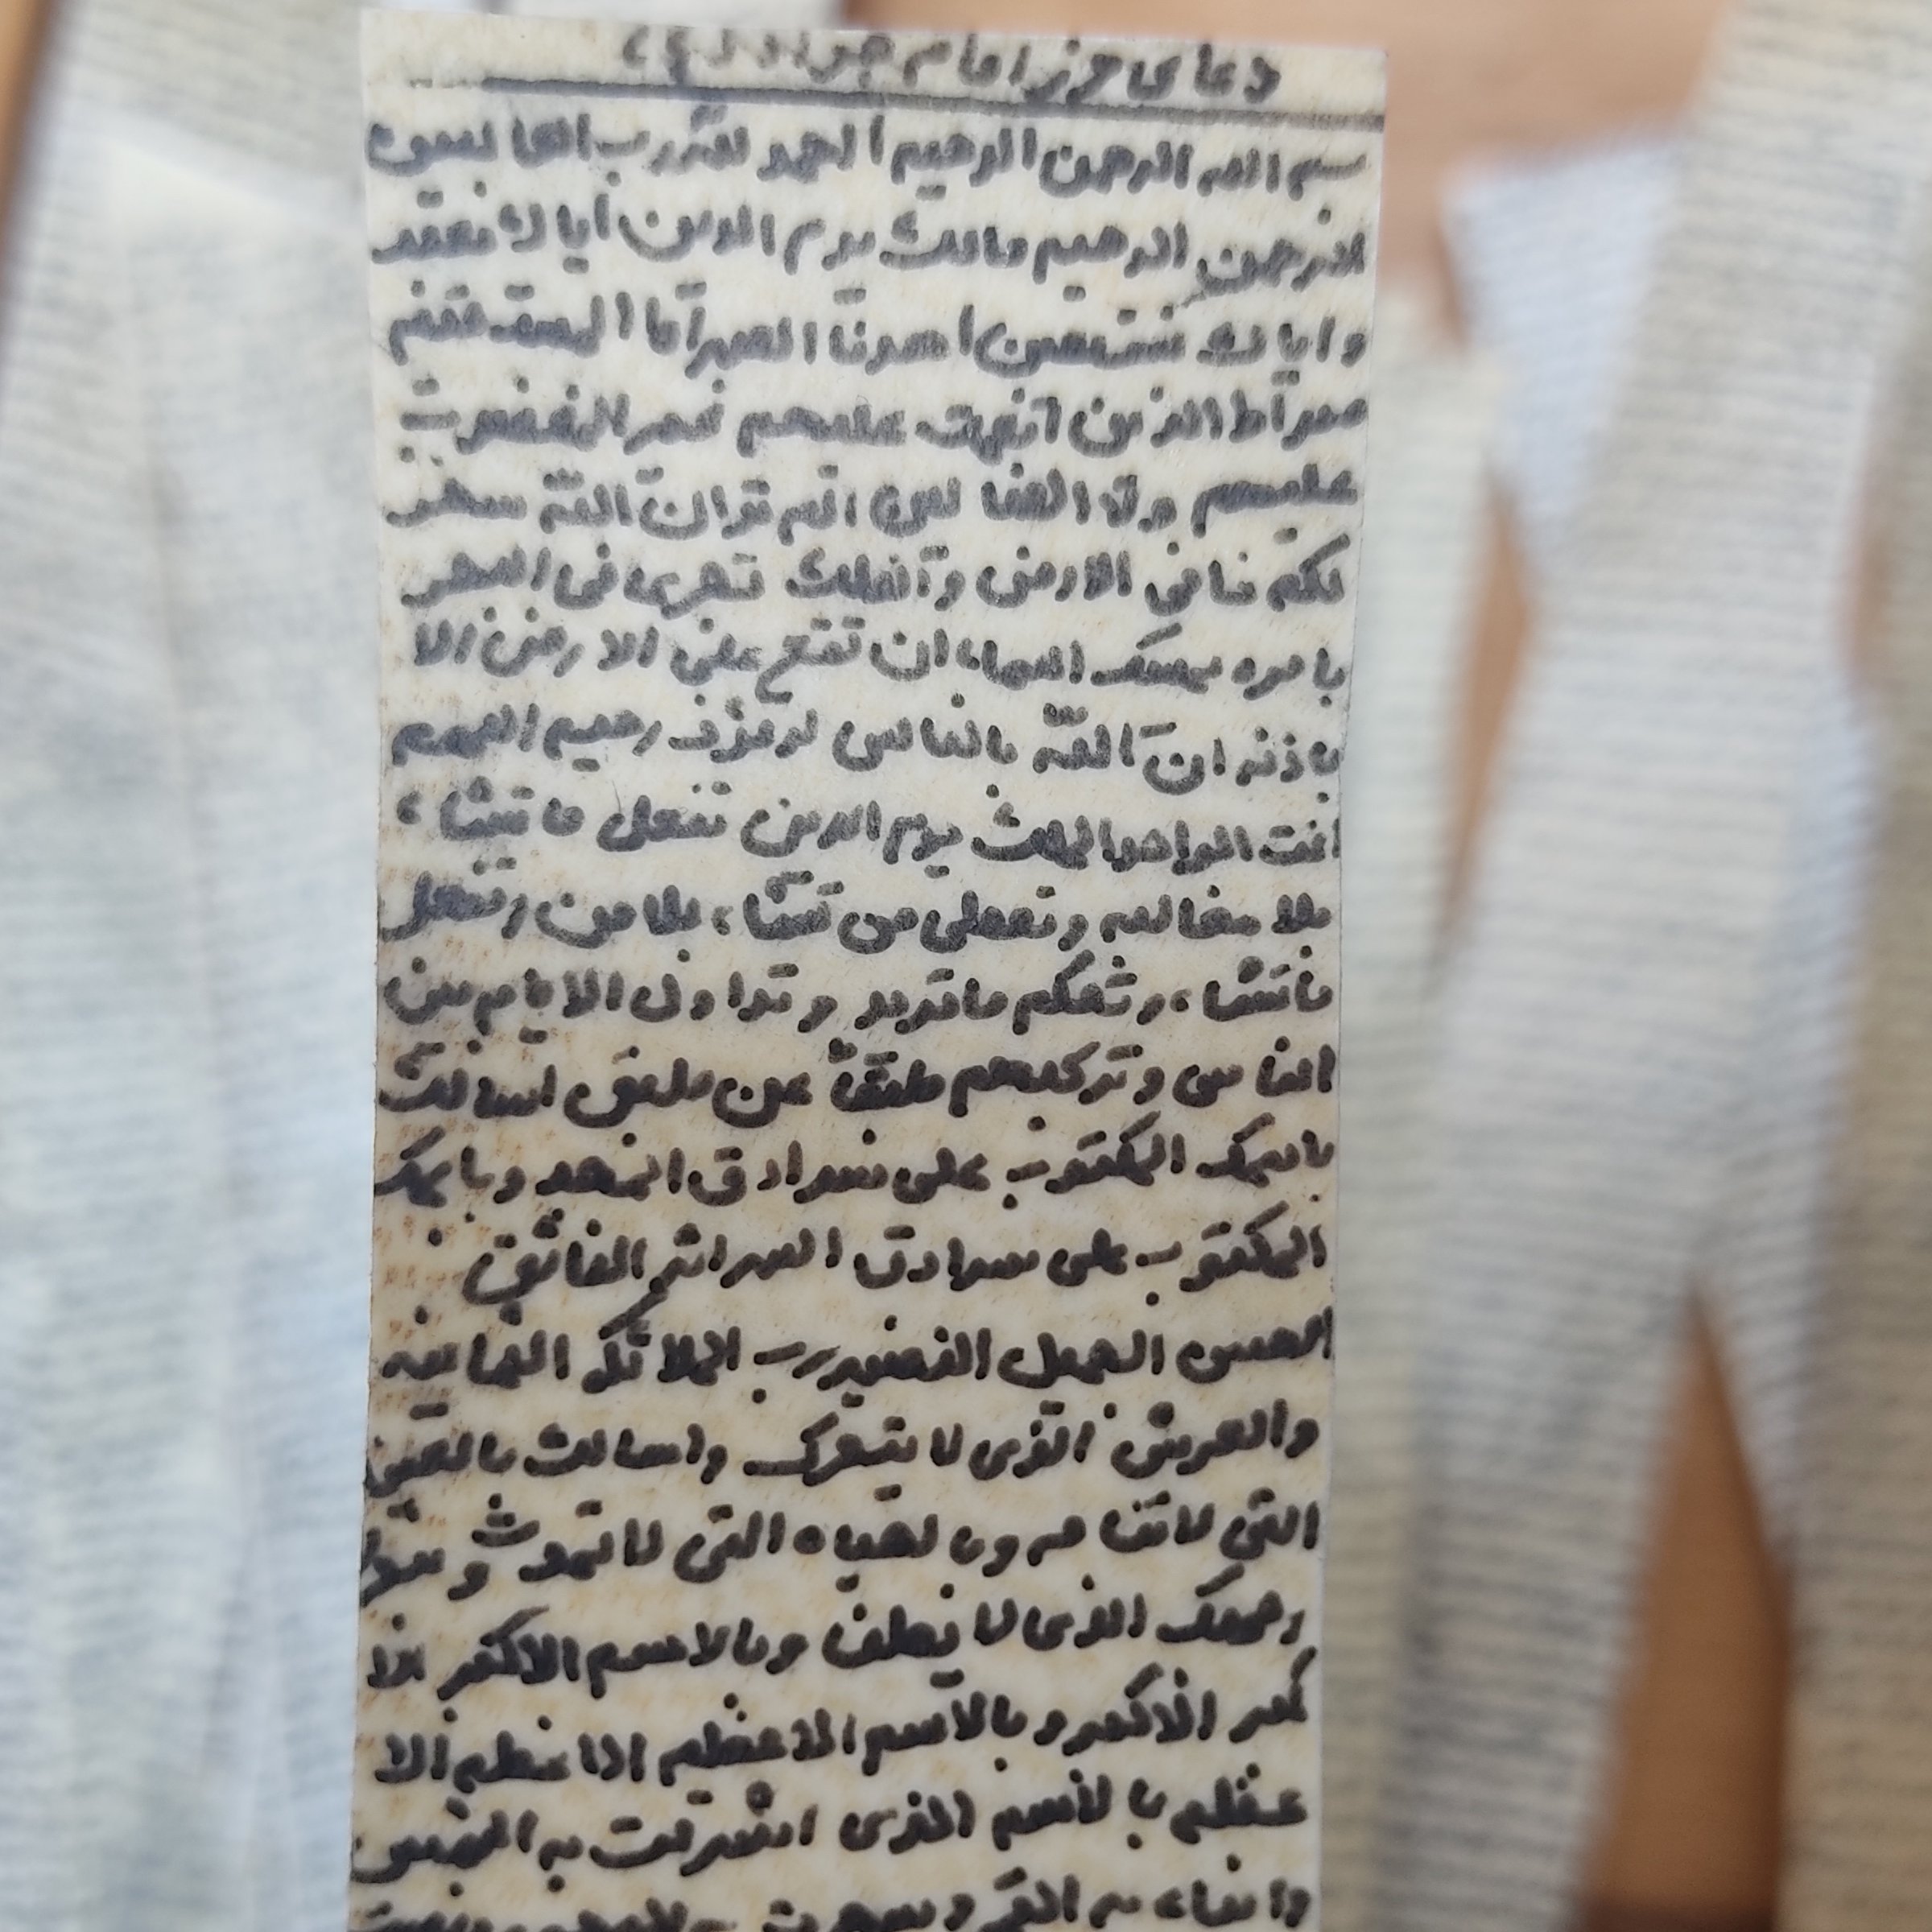 دعای حرز امام جواد (ع)
بسم الله الرحمن الرحیم الحمد لله رب العالمین
الرحمن الرحیم مالک یوم الدین ایاک نعبد
و ایاک نستعین اهدنا الصراط المستقیم
صراط الذین انعمت علیهم غیر المغضوب
علیهم ولا الضالین الم تر ان الله سخر
لکم ما فی الارض و الفلک تجری فی البحر
بامره یمسک السماء ان تقع علی الارض الا
باذنه ان الله بالناس لرءوف رحیم اللهم
انت الواحد الملک یوم الدین تفعل ما تشاء
بلا مغالبه و تعطی من تشاء بلا من و تفعل
ما تشاء و تحکم ما ترید و تداول الایام بین
الناس و ترکبهم طبقاً عن طبق اسالک
باسمک المکتوب علی سرادق المجد و باسمک
المکتوب علی سرادق السرائر الفائق
الحسن الجمیل النضیر رب الملائکه الثمانیه
والعرش الذی لا یتحرک و اسالک بالعین
التی لا تنام و بالحیاه التی لا تموت و بنور
وجهک الذی لا یطفی و بالاسم الاکبر الا
کبر الاکبر و بالاسم الاعظم الاعظم الا
عظم بالاسم الذی اشرقت به الشمس
و اضاء به القمر و سجرت به